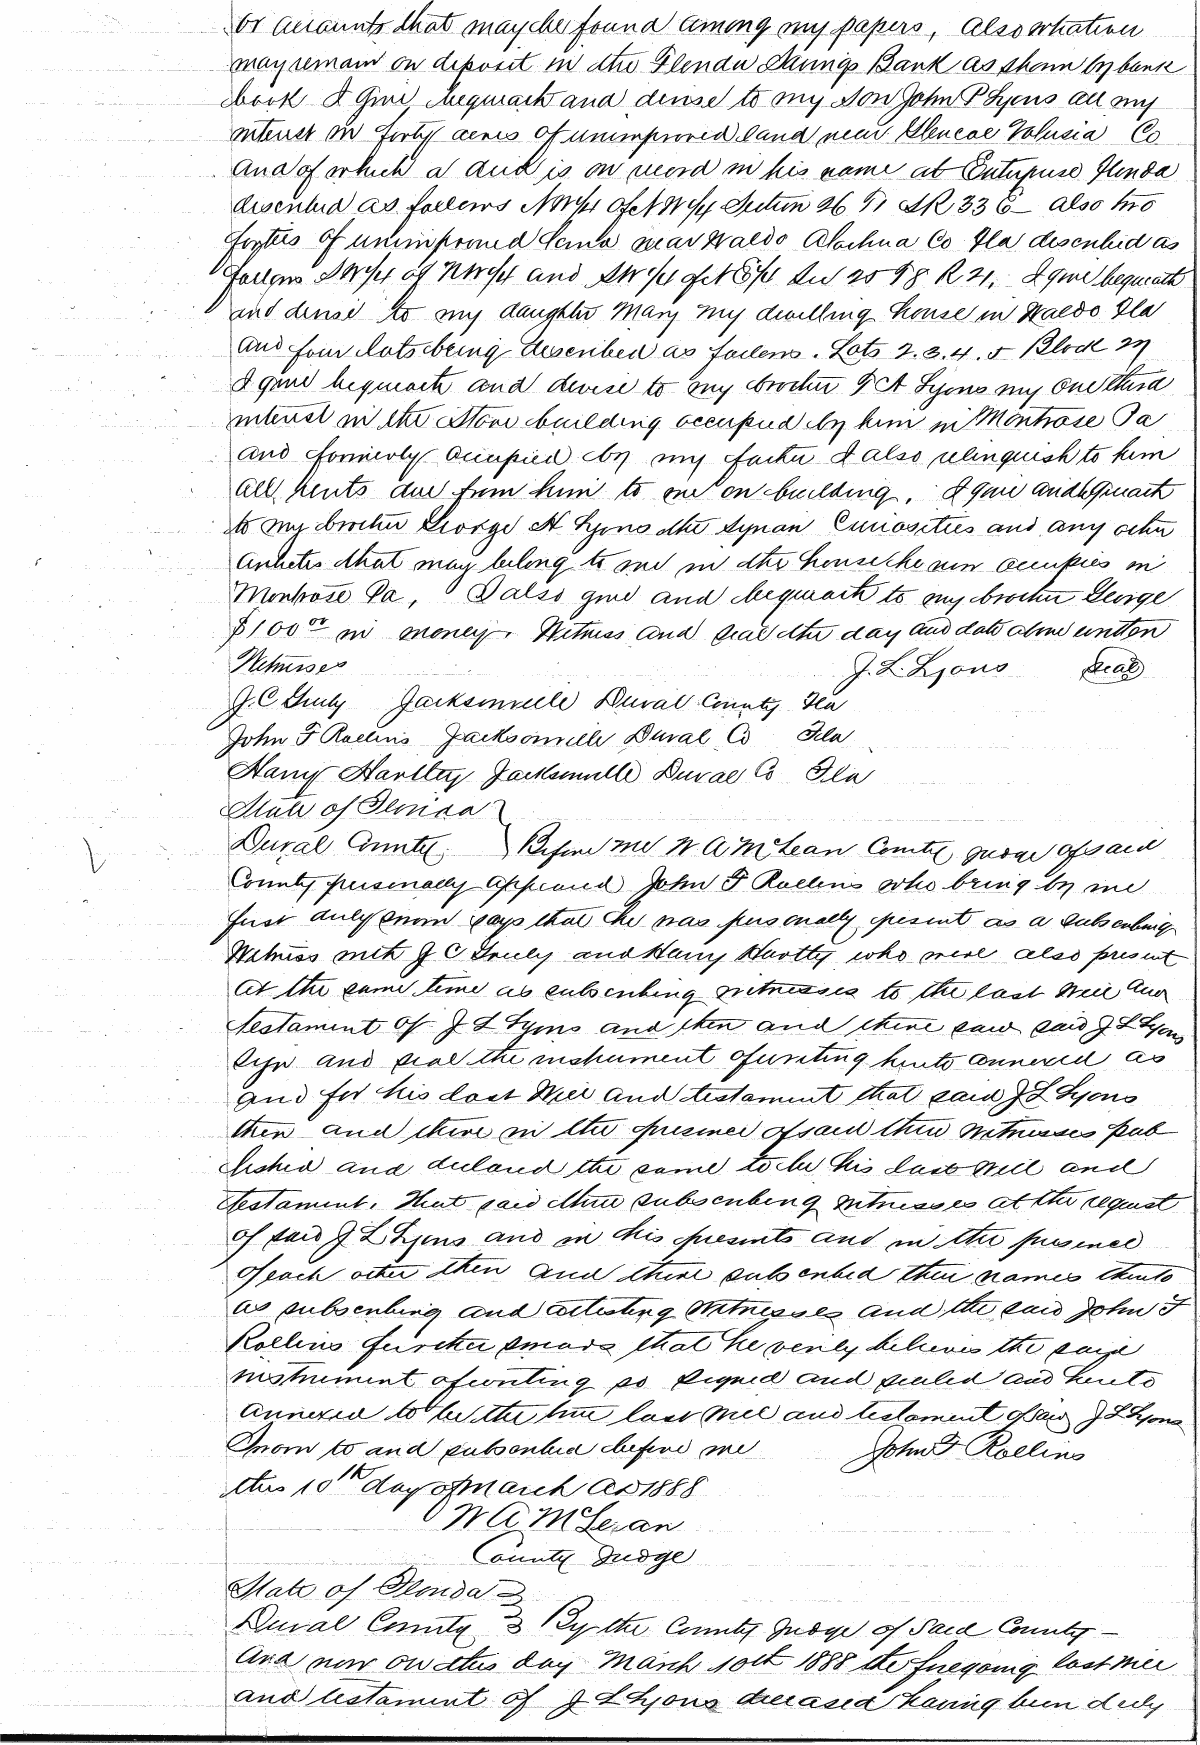 or accounts that may be found among my papers, Also whatever
may remain on deposit in the Florida Savings Bank as shown by bank
book I Give, bequeath and devise to my Son John P Lyons all my
interest in forty acres of unimproved land near Glencoe Volusia Co
and of which a deed is on record in his name at Enterprise Florida
described as follows NW¼ of NW¼ Section 26 T1 SR 33 E – also two
forties of unimproved land near Waldo Alachua Co Fla described as
follows SW¼ of NW¼ and SW¼ of NE¼ Sec 25 T8 R 21, I give bequeath
and devise to my daughter Mary my dwelling house in Waldo Fla
and four lots being described as follows. Lots 2.3.4.5 Block 27
I give bequeath and devise to my brother T A Lyons my one third
interest in the Store building occupied by him in Montrose Pa
and formerly occupied by my father I also relinquish to him
all rents due from him to me on building. I give and bequeath
to my brother George H Lyons the Syrian Curiosities and any other
articles that may belong to me in the house he now occupies in
Montrose Pa, I also give and bequeath to my brother George
$100 00 in money. Witness and seal the day and date above written
Witnesses J. L. Lyons seal
J. C Greely Jacksonville Duval County Fla
John F Rollins Jacksonville Duval Co Fla
Harry Hartley Jacksonville Duval Co Fla
State of Florida
Duval County. Before me W A McLean County Judge of said
County personally appeared John F Rollins who being by me
first duly sworn says that he was personally present as a subscribing
Witness with J C Greely and Harry Hartley who were also present
at the same time as subscribing witnesses to the last Will and
testament of J L Lyons and then and there saw said J L Lyons
sign and seal the instrument of writing hereto annexed as
and for his last Will and testament that said J L Lyons
then and there in the presence of said three Witnesses pub
lished and declared the same to be his last will and
testament. That said three subscribing witnesses at the request
of said J L Lyons and in his presents and in the presence
of each other then and there subscribed their names thereto
as subscribing and attesting Witnesses and the said John F
Rollins further swears that he verily believes the said
instrument of writing so signed and sealed and hereto
annexed to be the true last will and testament of said J L Lyons
Sworn to and subscribed before me John F Rollins
this 10th day of March AD 1888
W A McLean
County Judge
State of Florida
Duval County By the County Judge of Said County –
And now on this day March 10th 1888 the foregoing last will
and testament of J L Lyons deceased having been duly